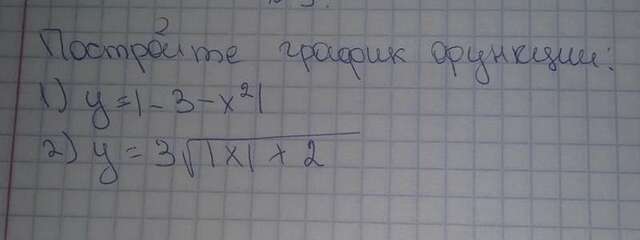 Постройте график функции:
1) y = |-3-x²|
2) y = 3√|x| + 2